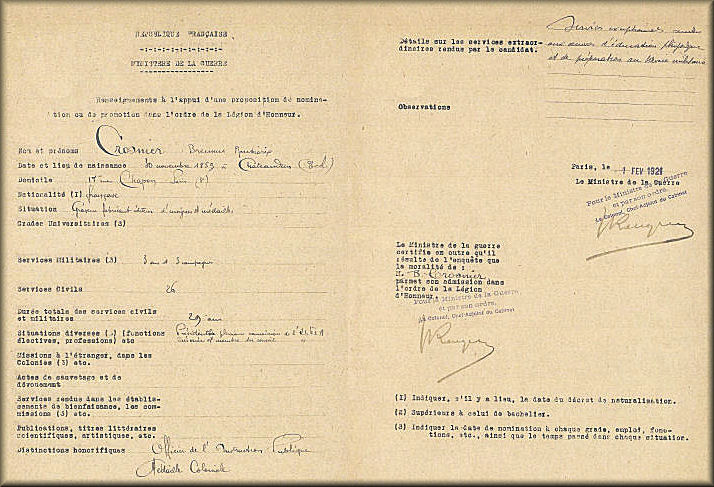 REPUBLIQUE FRANÇAISE
-:-:-:-:-:-:-:-:-:-
MINISTERE DE LA GUERRE
Renseignements à l'appui d'une proposition de nomina-
tion ou de promotion dans l'ordre de la Légion d'Honneur.
Nom et prénoms Crosnier Brennus
Date et lieu de naissance 30 novembre 1859 à Châteaudun (E&L)
Domicile 17 rue Chapon Paris
Nationalité (I) française
Situation Graveur fabricant
Grades Universitaires (3)
Services Militaires (3) 3 ans
Services Civils 26
Durée totale des services civils
et militaires 29 ans
Situations diverses (.) (fonctions
électives, professions) etc
Missions à l'étranger, dans les
Colonies (3) etc.
Actes de sauvetage et de
dévouement
Services rendus dans les établis-
sements de bienfaisance, les com-
missions (3) etc.
Publications, titres littéraires
scientifiques, artistiques, etc.
Distinctions honorifiques Officier de l'Instruction Publique
Médaille Coloniale
Détails sur les services extraor-
dinaires rendus par le candidat.
Services exceptionnels rendus
aux œuvres d'éducation physique
et de préparation au service militaire
Observations
Paris, le 1 FEV 1921
Le Ministre de la Guerre
Pour le Ministre de la Guerre
et par son ordre,
Le Colonel, Chef-Adjoint du Cabinet
Le Ministre de la guerre
certifie en outre qu'il
résulte de l'enquête que
la moralité de :
M. B. Crosnier
permet son admission dans
l'ordre de la Légion
d'Honneur.
Pour le Ministre de la Guerre,
et par son ordre,
Le Colonel, Chef-Adjoint du Cabinet
(I) Indiquer, s'il y a lieu, la date du décret de naturalisation.
(2) Supérieurs à celui de bachelier.
(3) Indiquer la date de nomination à chaque grade, emploi, fonc-
tions, etc., ainsi que le temps passé dans chaque situation.